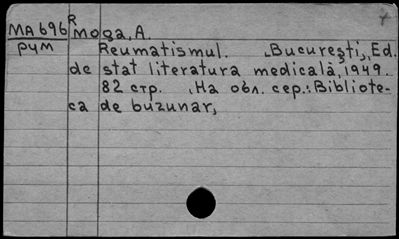 R
MA696 Moga, A.
рум Reumatismul. București, Ed.
de stat literatura medicală, 1949.
82 стр. На обл. сер.: Bibliote-
ca de buzunar,